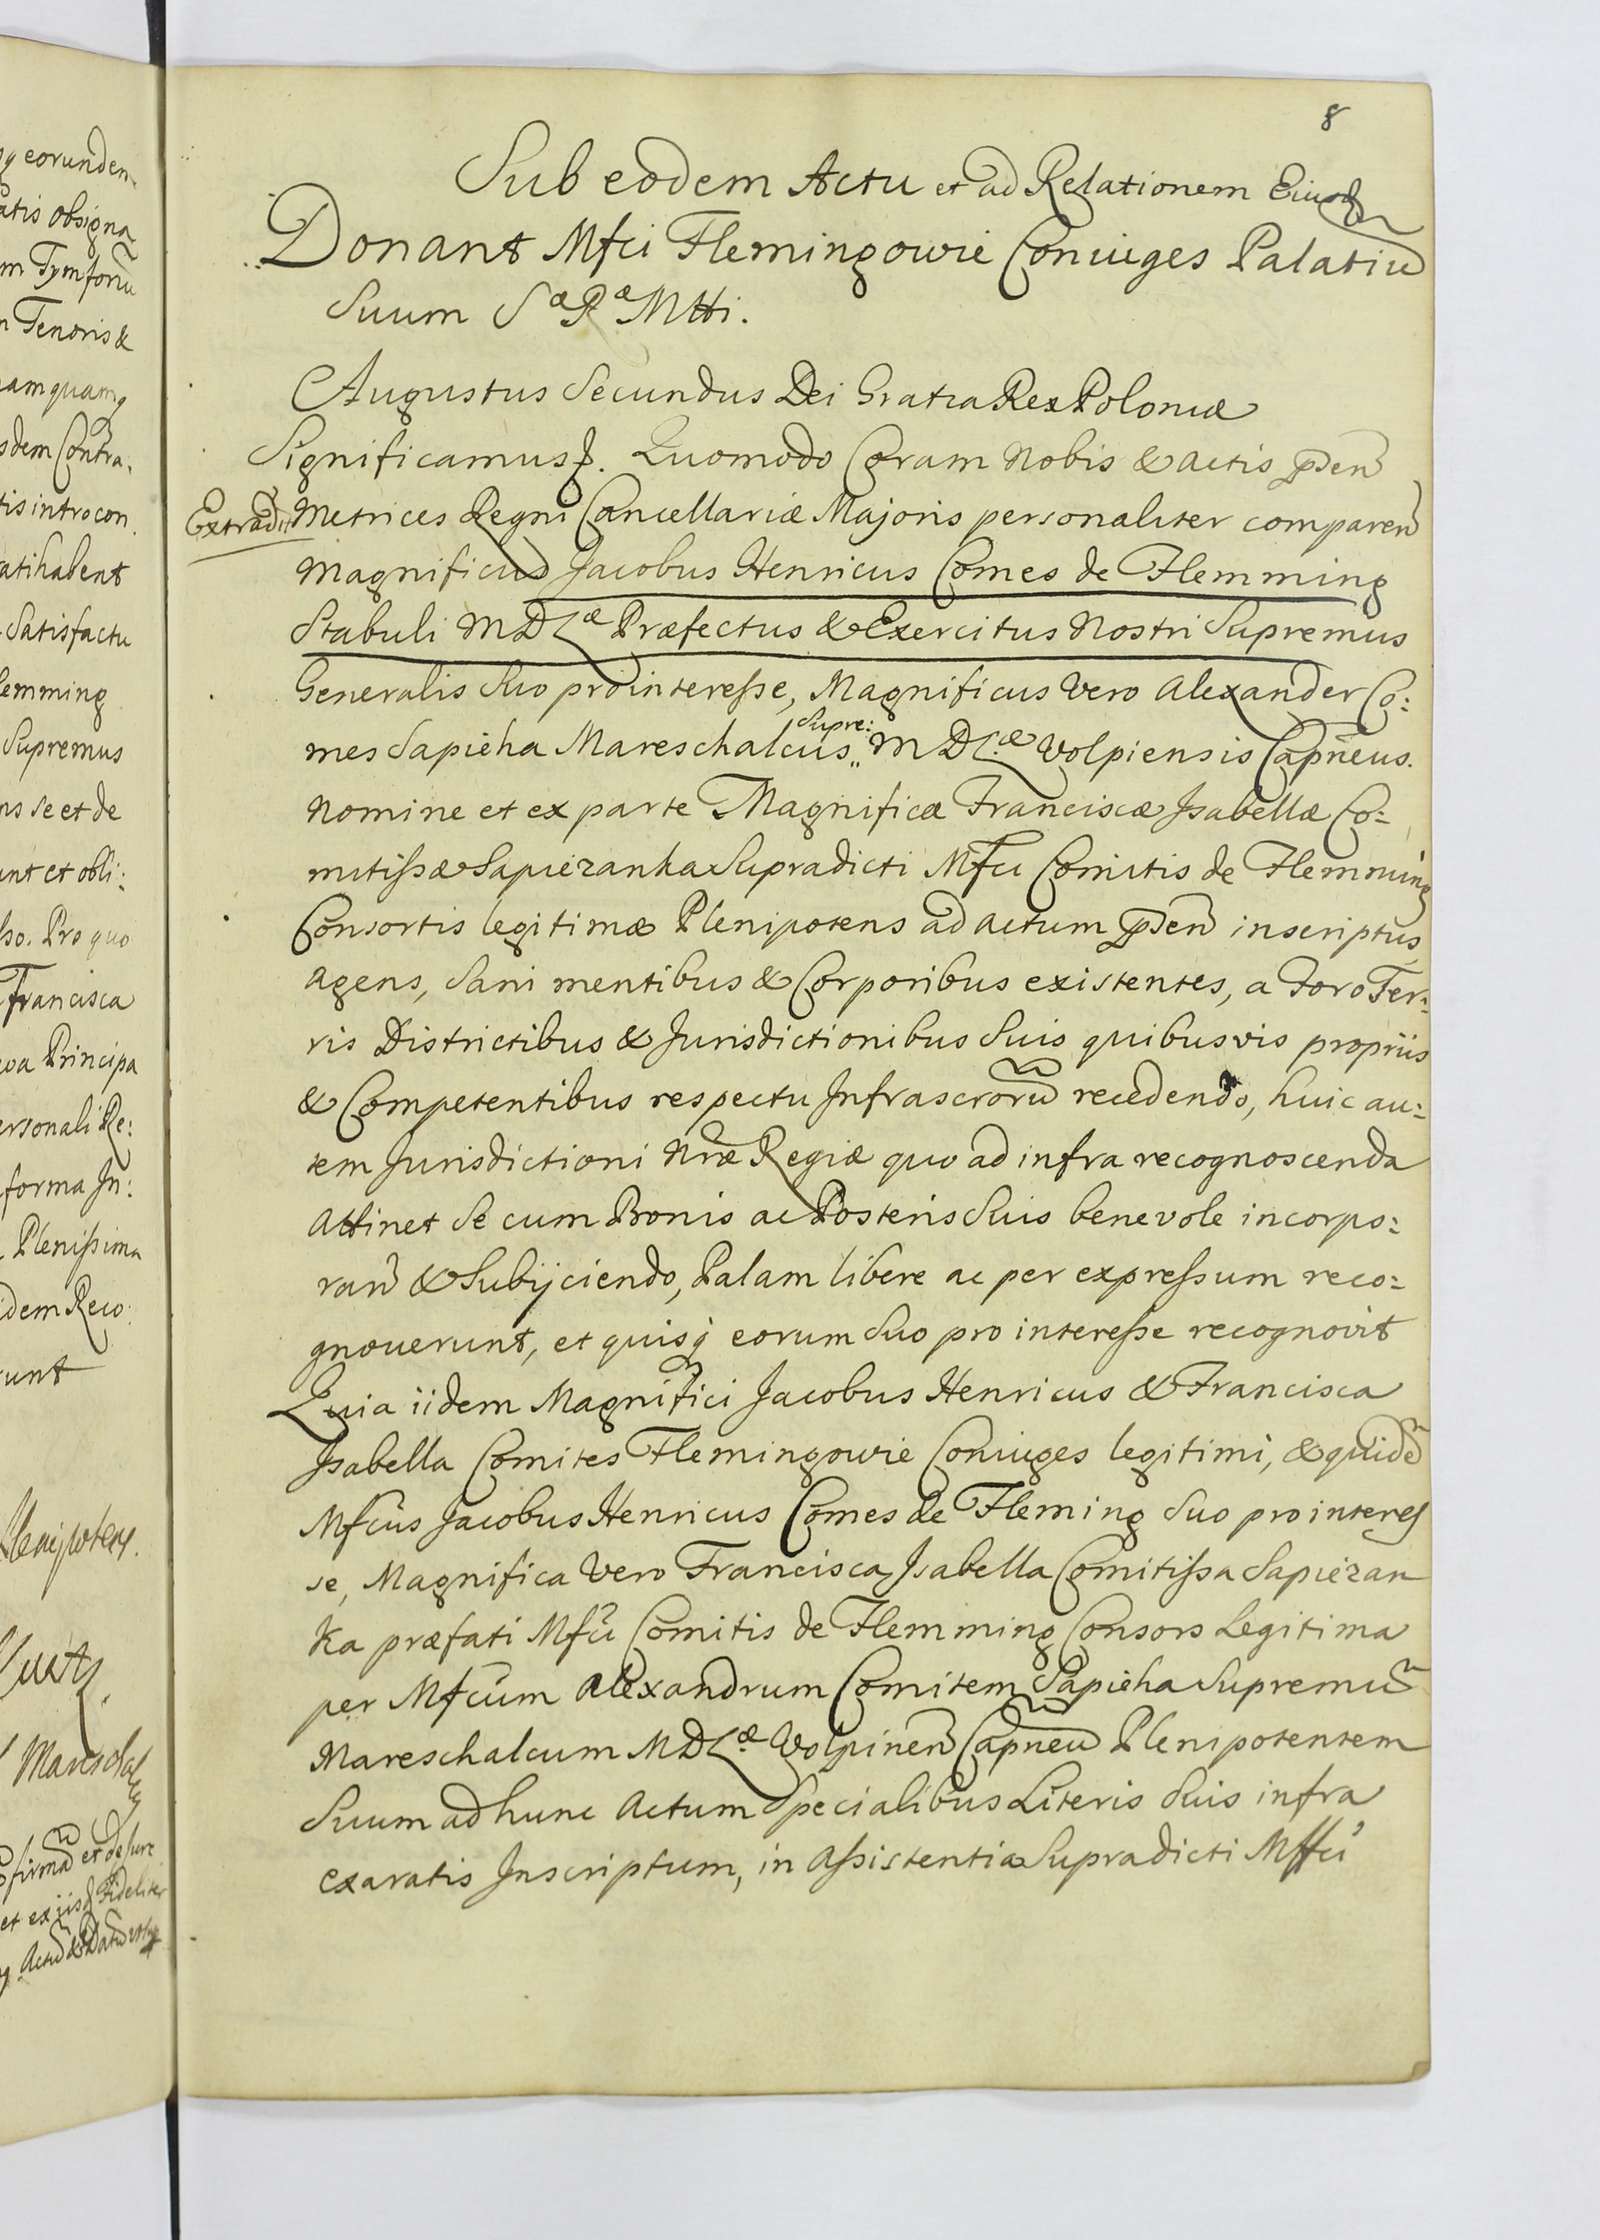 8
Sub eodem Actu et ad Relationem Eiusd
Donant Mfci Flemingowie Coniuges Palatiũ
Suum Sæ Ræ Mtti.
Augustus Secundus Dei Gratia Rex Poloniæ
Significamus. Quomodo Coram Nobis & Actis pſen
Extradit
Metrices Regni Cancellariæ Majoris personaliter comparen
Magnificus Jacobus Henricus Comes de Flemming
Stabuli MDLæ Præfectus & Exercitus Nostri Supremus
Generalis Suo pro interesse, Magnificus Vero Alexander Co:
mes Sapieha Mareschalcus Supre: MDLæ Volpiensis Capneus.
Nomine et ex parte Magnificæ Franciscæ Isabellæ Co:
mitissæ Sapiezanka Supradicti Mfci Comitis de Flemming
Consortis legitimæ Plenipotens ad actum pſen inscriptus,
Agens, Sani mentibus & Corporibus existentes, a Foro Ter:
ris Districtibus & Jurisdictionibus Suis quibusvis propriis
& Competentibus respectu Infrascrorũ recedendo, huic au:
tem Jurisdictioni Nræ Regiæ quo ad infra recognoscenda
Attinet Se cum Bonis ac Posteris Suis benevole incorpo:
ran & Subijciendo, Palam libere ac per expressum reco:
gnoverunt, et quisq eorum Suo pro interesse recognovit
Quia iidem Magnifici Jacobus Henricus & Francisca
Isabella Comites Flemingowie Coniuges legitimi, & quidẽ
Mfcus Jacobus Henricus Comes de Fleming Suo pro interes
se, Magnifica Vero Francisca Isabella Comitissa Sapiezan
ka præfati Mfci Comitis de Flemming Consors Legitima
per Mfcum Alexandrum Comitem Sapieha Supremũ
Mareschalcum MDLæ Volpinen Capneũ Plenipotentem
Suum ad hunc Actum Specialibus Literis Suis infra
exaratis Inscriptum, in Assistentia Supradicti Mffci